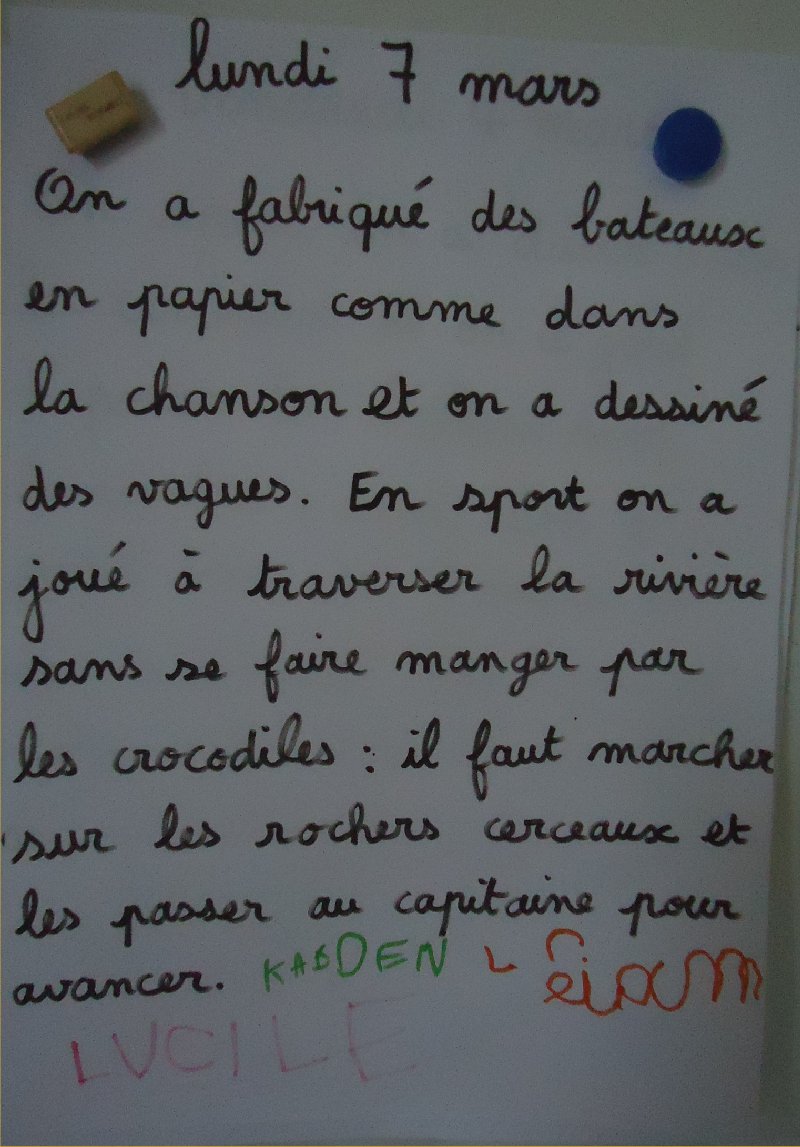 lundi 7 mars
On a fabriqué des bateaux
en papier comme dans
la chanson et on a dessiné
des vagues. En sport on a
joué à traverser la rivière
sans se faire manger par
les crocodiles : il faut marcher
sur les rochers cerceaux et
les passer au capitaine pour
avancer.
LUCILE